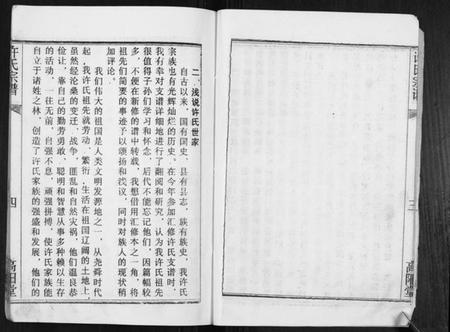 二、浅说许氏世家
自古以来，国有国史，县有县志，族有族史，我许氏
宗族也有光辉灿烂的历史。在今年参加汇修许氏支谱时，
我有幸对支谱详细地进行了翻阅和研究，认为我许氏史
很值得子孙们学习和怀念，后代不能忘记他们，因篇幅较
多，不便在新修的谱中转载，我想借用汇修本之一角，将
祖先们简要的事迹予以颂扬和浅议，同时对族人的现状稍
加评论。
我们伟大的祖国是人类文明发源地之一，从尧舜时代
起，我许氏祖先就劳动、繁衍，生活在祖国辽阔的土地上，
虽然经沧桑的变迁，战争、匪乱和自然灾祸，他们温良恭
俭让，靠自己的勤劳勇敢、聪明和智慧从事多种赖以生存
的活动，一往无前，自强不息，顽强拼搏，使许氏家族能
自立于诸姓之林，创造了许氏家族的强盛和发展，他们的
许氏宗谱
四
高阳堂
许氏宗谱
三
高阳堂